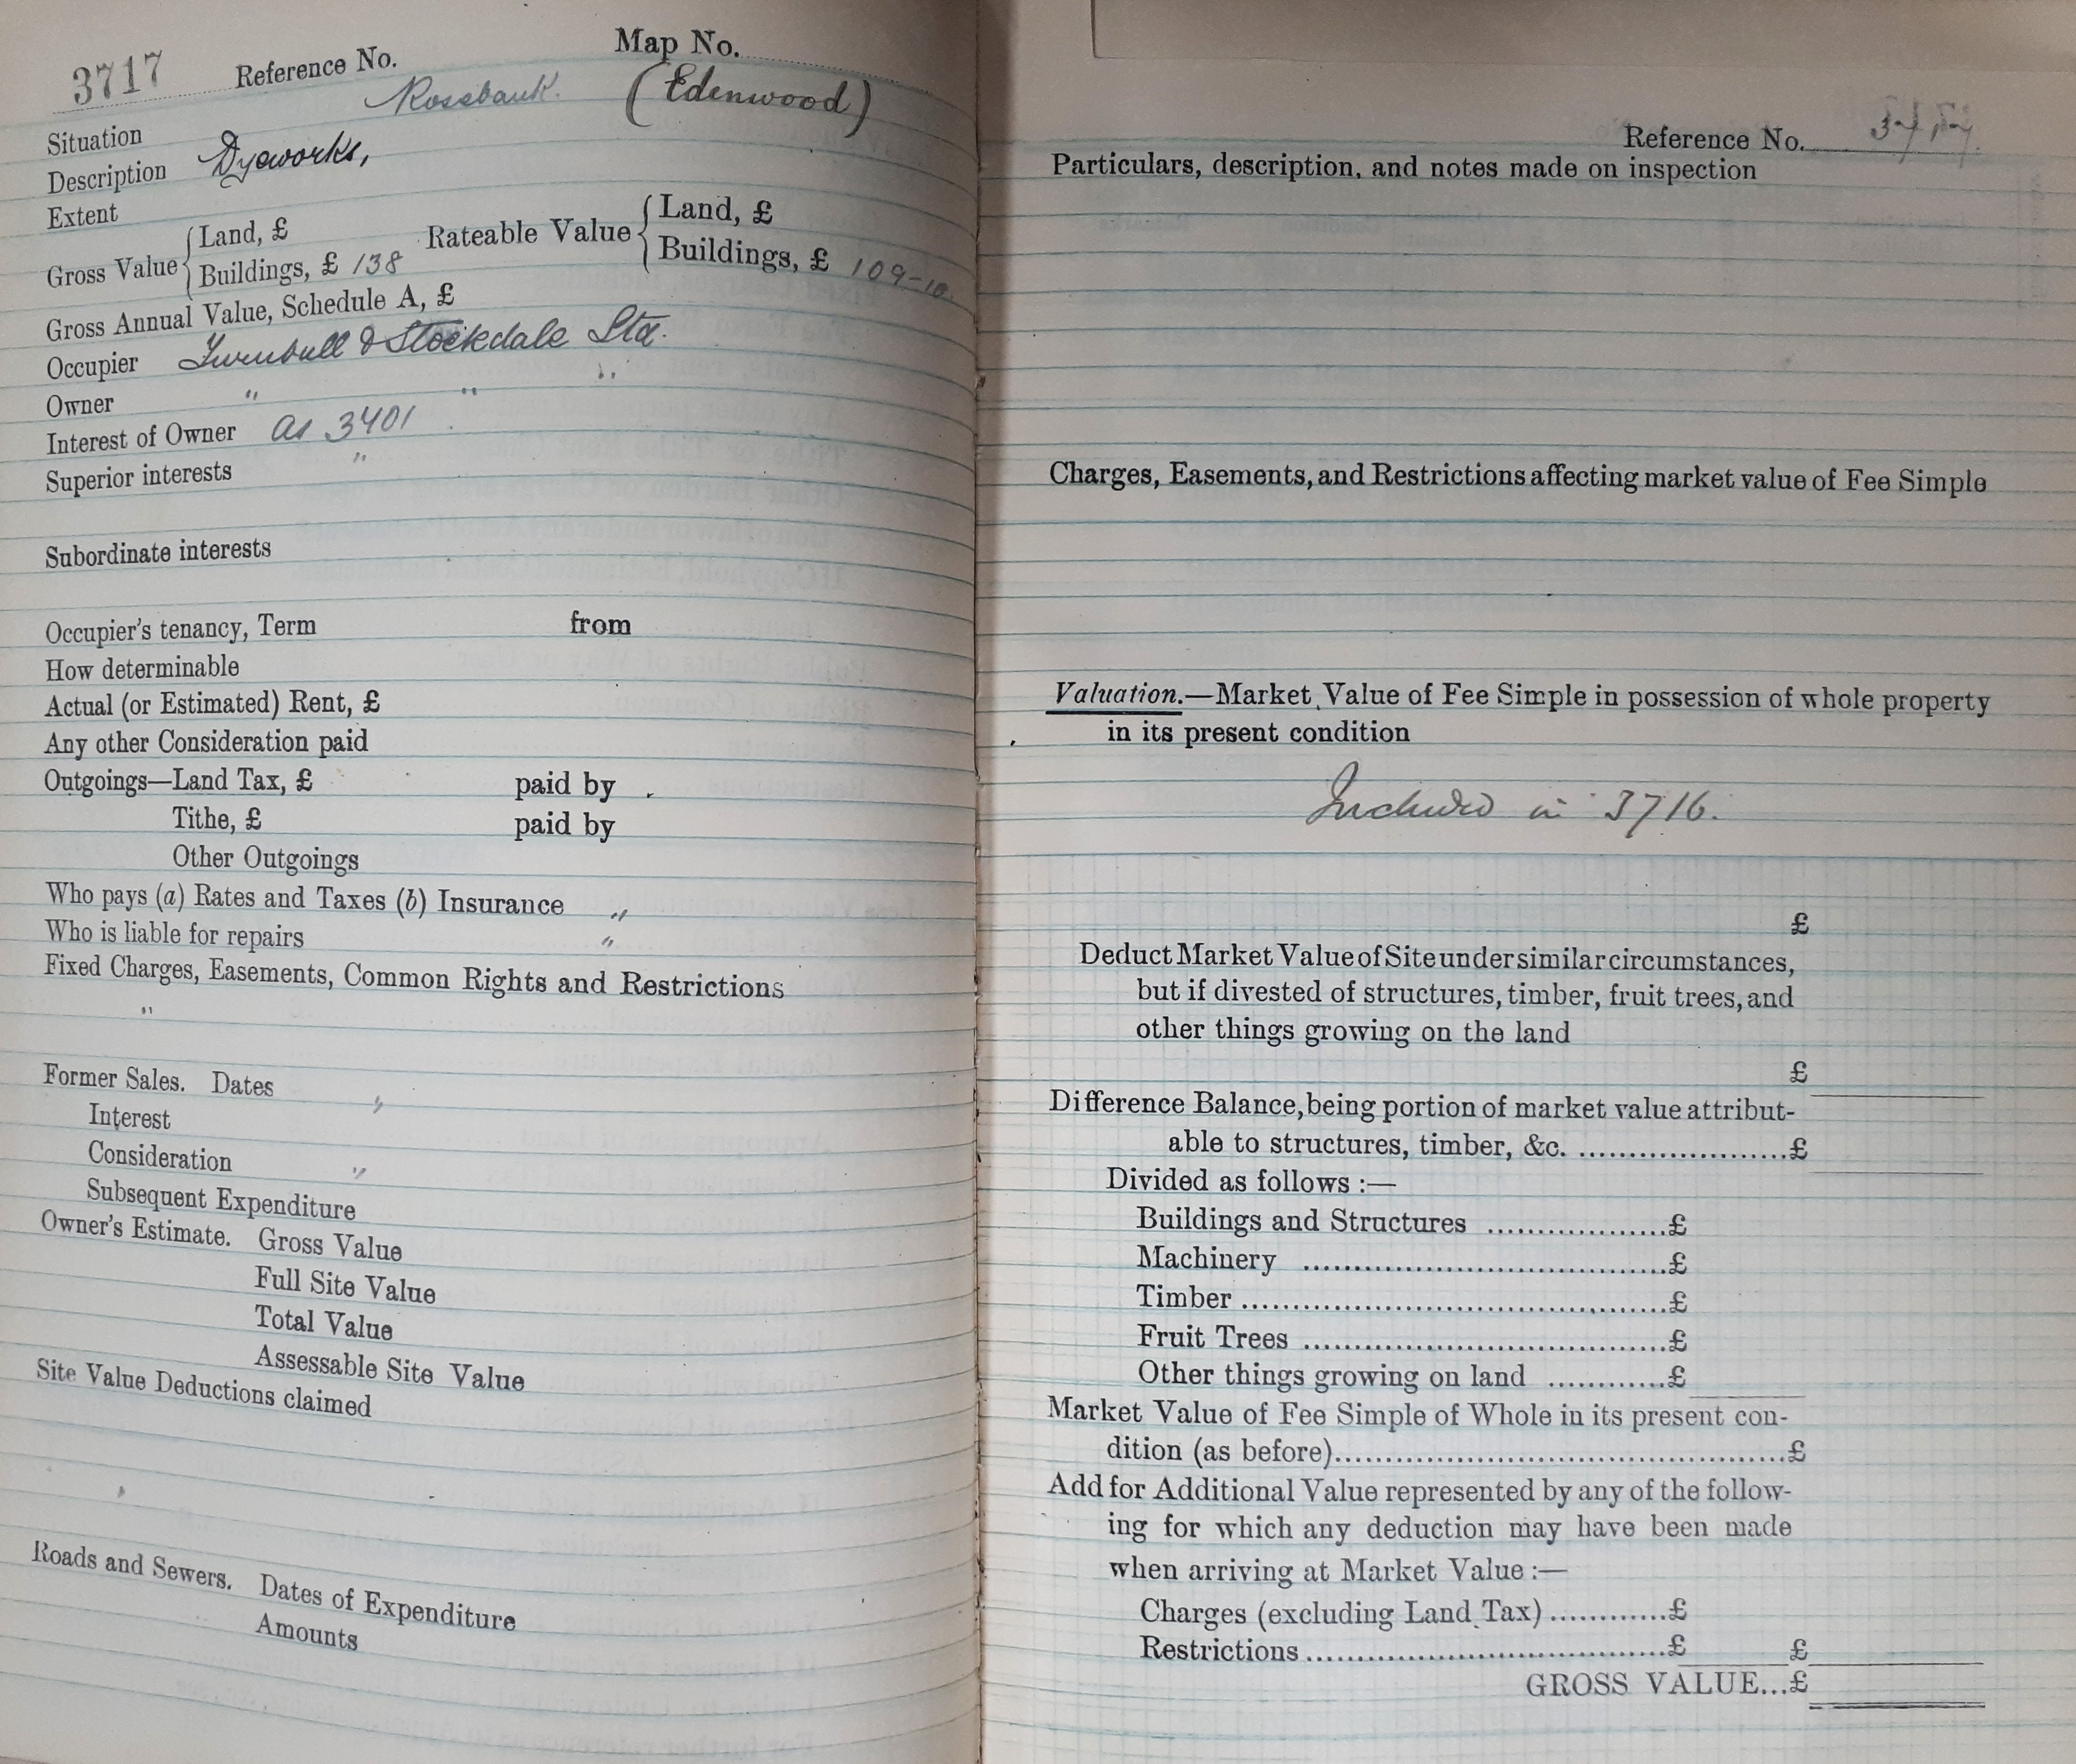 3717 Reference No. Map No.
Situation Rosebank. (Edenwood)
Description Dyeworks,
Extent
Gross Value { Land, £ Rateable Value { Land, £
Buildings, £ 138 Buildings, £ 109-10.
Gross Annual Value, Schedule A, £
Occupier Turnbull & Stockdale Ltd.
Owner " " "
Interest of Owner as 3401
Superior interests "
Subordinate interests
Occupier's tenancy, Term from
How determinable
Actual (or Estimated) Rent, £
Any other Consideration paid
Outgoings—Land Tax, £ paid by
Tithe, £ paid by
Other Outgoings
Who pays (a) Rates and Taxes (b) Insurance "
Who is liable for repairs "
Fixed Charges, Easements, Common Rights and Restrictions
"
Former Sales. Dates "
Interest
Consideration "
Subsequent Expenditure
Owner's Estimate. Gross Value
Full Site Value
Total Value
Assessable Site Value
Site Value Deductions claimed
Roads and Sewers. Dates of Expenditure
Amounts
Reference No. 3717.
Particulars, description, and notes made on inspection
Charges, Easements, and Restrictions affecting market value of Fee Simple
Valuation.—Market Value of Fee Simple in possession of whole property
in its present condition
Included in 3716.
£
Deduct Market Value of Site under similar circumstances,
but if divested of structures, timber, fruit trees, and
other things growing on the land
£
Difference Balance, being portion of market value attribut-
able to structures, timber, &c. ......................£
Divided as follows :—
Buildings and Structures ....................£
Machinery ..........................................£
Timber ................................................£
Fruit Trees ..........................................£
Other things growing on land ............£
Market Value of Fee Simple of Whole in its present con-
dition (as before)....................................................£
Add for Additional Value represented by any of the follow-
ing for which any deduction may have been made
when arriving at Market Value :—
Charges (excluding Land Tax) ............£
Restrictions..........................................£ £
GROSS VALUE...£